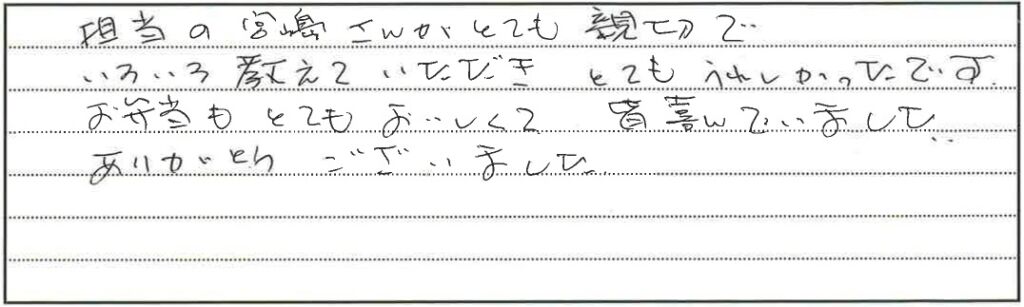 担当の宮嶋さんがとても親切で
いろいろ教えていただき とても うれしかったです.
お弁当も とても おいしくて 皆喜んでいました
ありがとう ございました